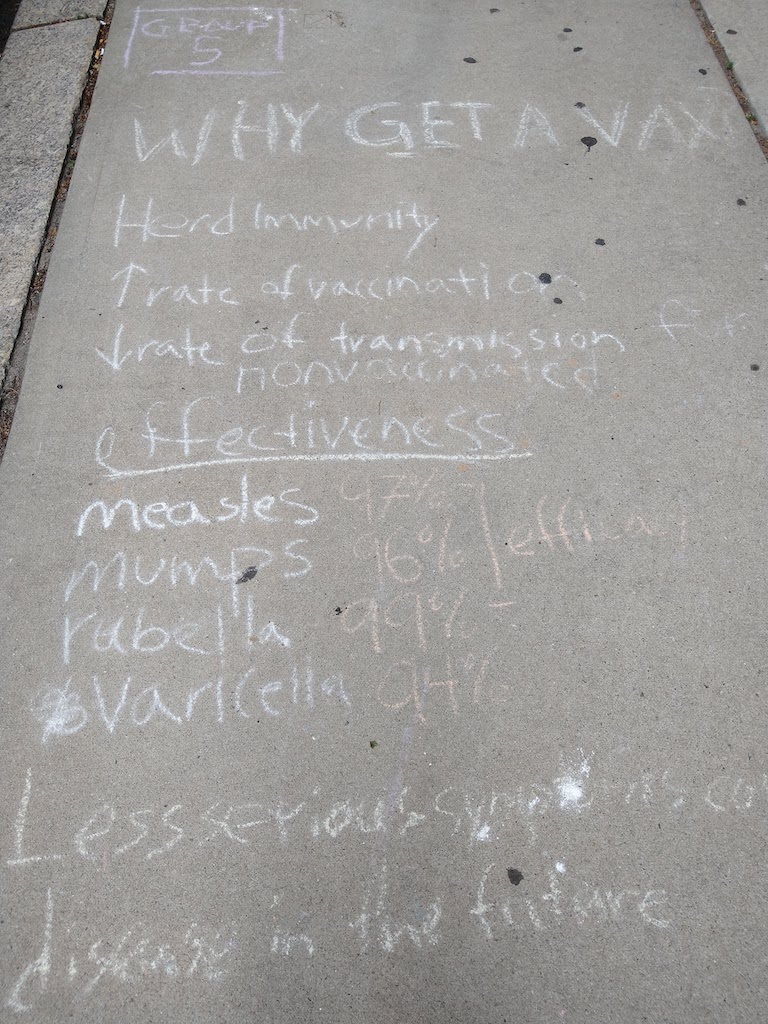 GROUP
5
WHY GET A VAX
Herd Immunity
↑rate of vaccination
↓rate of transmission for
nonvaccinated
effectiveness
measles 97%
mumps 96% efficacy
rubella 99%
varicella 94%
Less serious symptoms
disease in the future